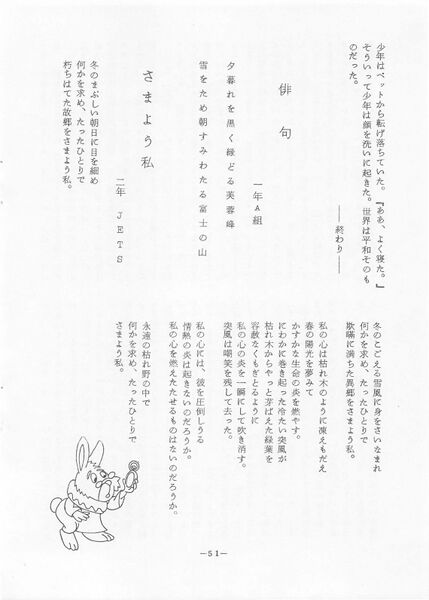 少年はベットから転げ落ちていた。『ああ、よく寝た。』
そういって少年は顔を洗いに起きた。世界は平和そのも
のだった。
――終わり――
俳句
一年A組
夕暮れを黒く縁どる芙蓉峰
雪をため朝すみわたる富士の山
さまよう私
二年 JETS
冬のまぶしい朝日に目を細め
何かを求め、たったひとりで
朽ちはてた故郷をさまよう私。
冬のこごえる雪風に身をさいなまれ
何かを求め、たったひとりで
欺瞞に満ちた異郷をさまよう私。
私の心は枯れ木のように凍えもだえ
春の陽光を夢みて
かすかな生命の炎を燃やす。
にわかに巻き起った冷たい突風が
枯れ木からやっと芽ばえた緑葉を
容赦なくもぎとるように
私の心の炎を一瞬にして吹き消す。
突風は嘲笑を残して去った。
私の心には、彼を圧倒しうる
情熱の炎は起きないのだろうか。
私の心を燃えたたせるものはないのだろうか。
永遠の枯れ野の中で
何かを求め、たったひとりで
さまよう私。
―51―